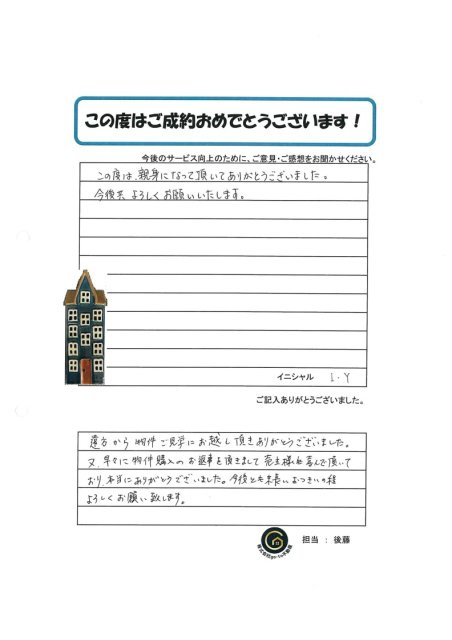 この度はご成約おめでとうございます！
今後のサービス向上のために、ご意見・ご感想をお聞かせください。
この度は、親身になって頂いてありがとうございました。
今後共、よろしくお願いいたします。
イニシャル I・Y
ご記入ありがとうございました。
遠方から物件ご見学にお越し頂きありがとうございました。
又、早々に物件購入のお返事を頂きまして売主様も喜んで頂いて
おり、本当にありがとうございました。今後とも末長いおつきいの程
よろしくお願い致します。
担当 ： 後藤